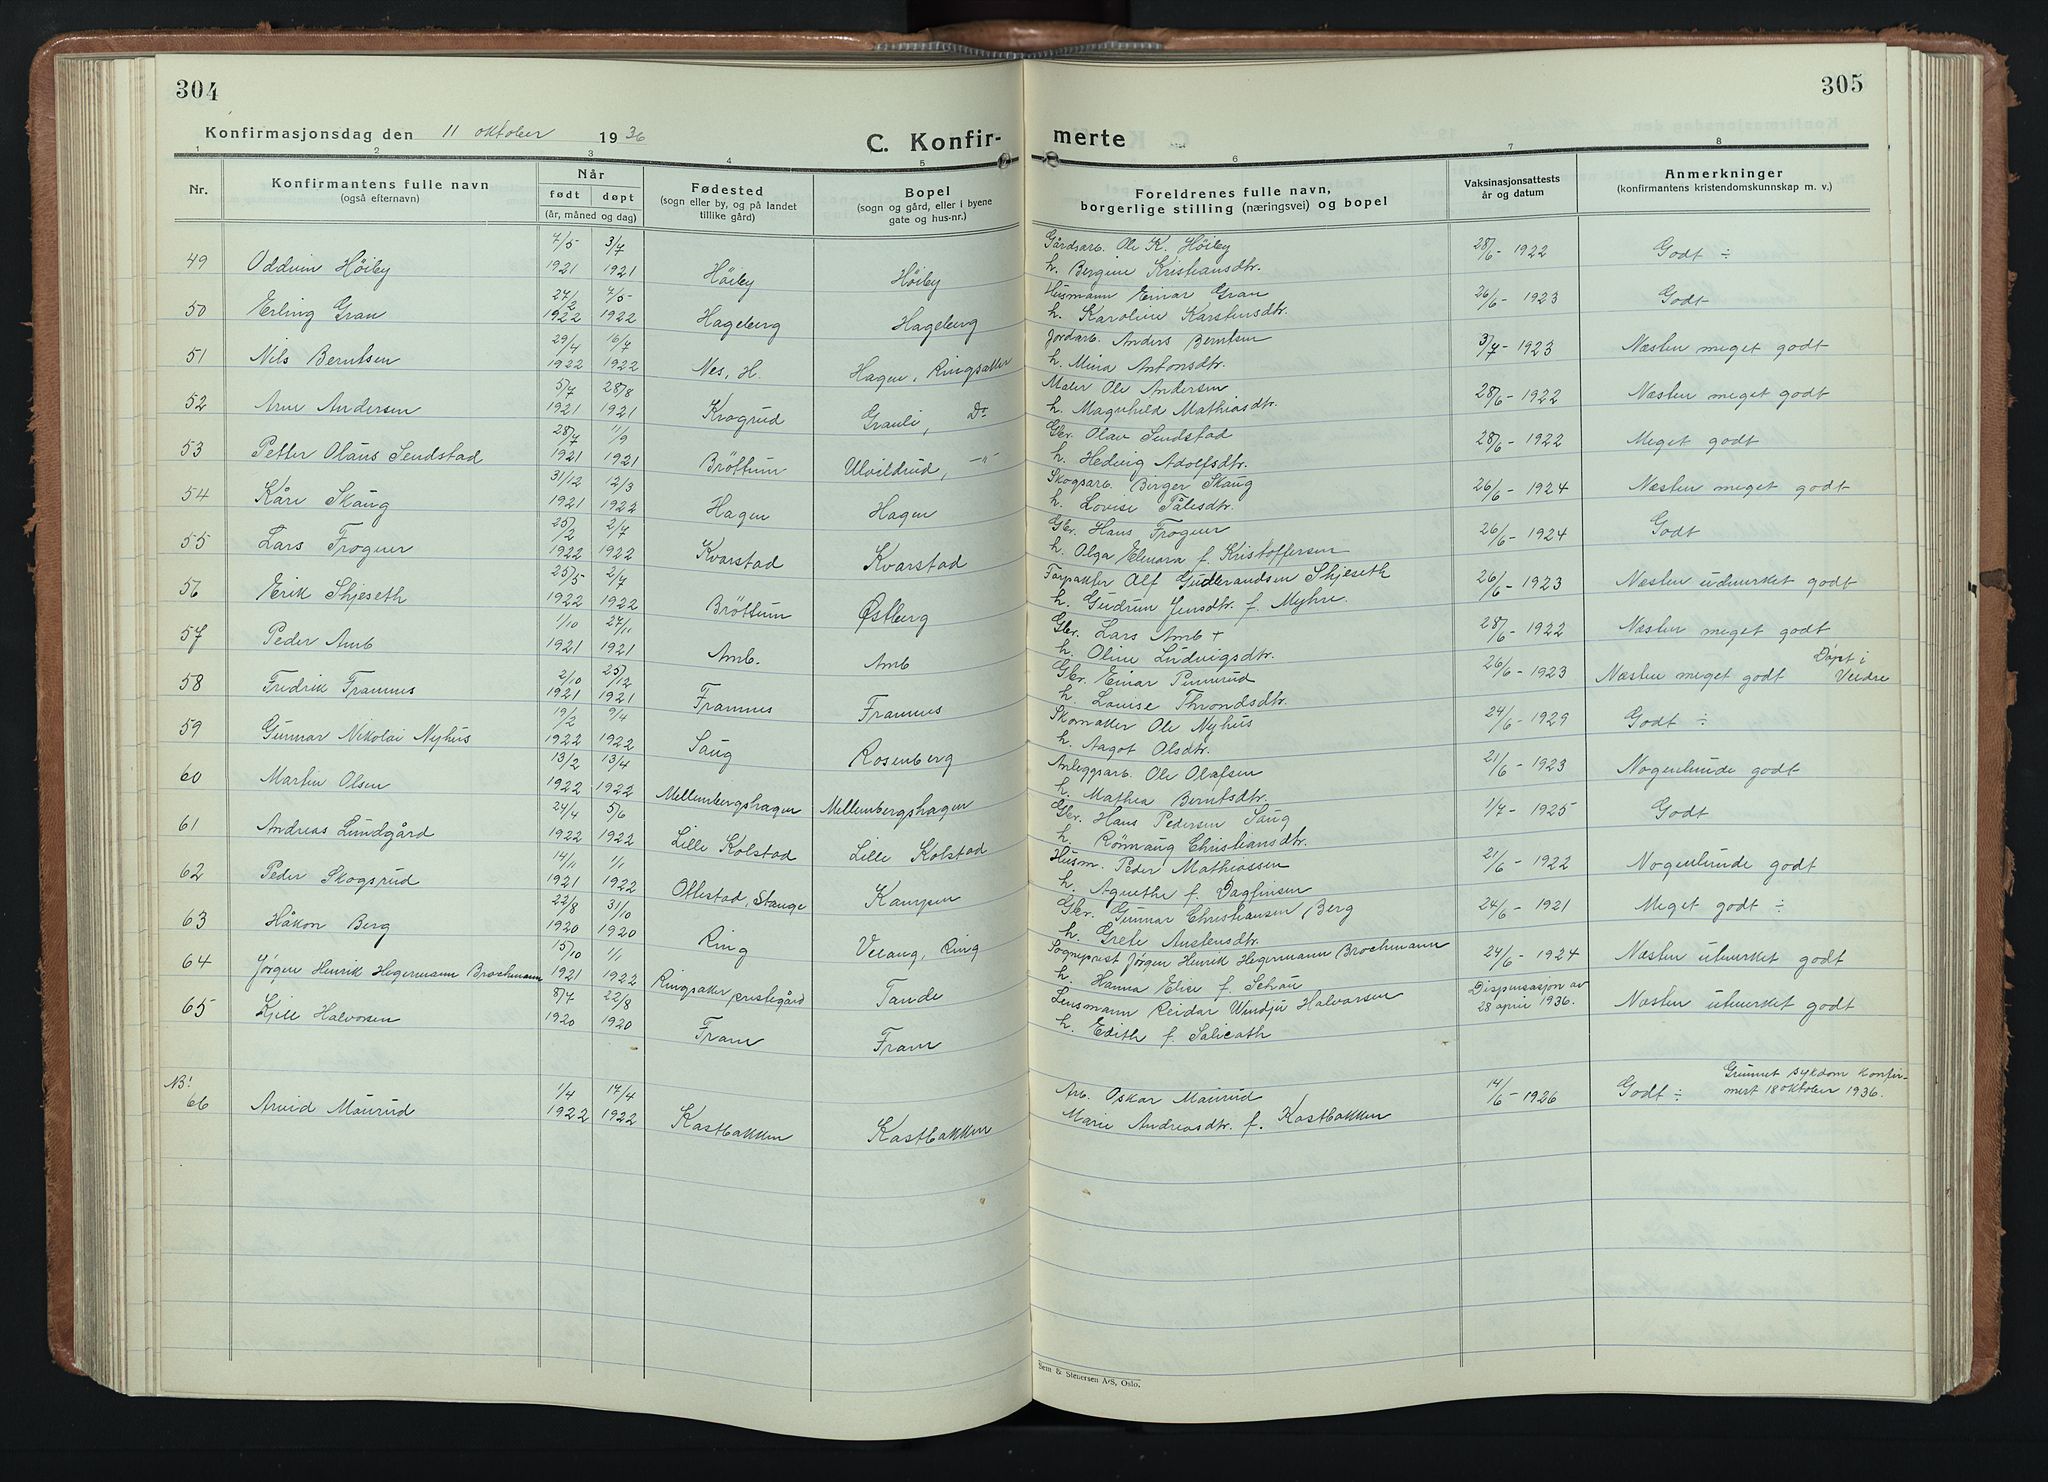 304
305
Konfirmasjonsdag den 11 oktober 1936
C. Konfir-
merte
1 2 3 4 5 6 7 8
Nr.
Konfirmantens fulle navn
(også efternavn)
Når
født døpt
(år, måned og dag)
Fødested
(sogn eller by, og på landet
tillike gård)
Bopel
(sogn og gård, eller i byene
gate og hus-nr.)
Foreldrenes fulle navn,
borgerlige stilling (næringsvei) og bopel
Vaksinasjonsattests
år og datum
Anmerkninger
(konfirmantens kristendomskunnskap m. v.)
7/5 3/7 Gårdsarb. Ole K. Höiby 28/6 - 1922 Godt ÷
49 Oddvin Höiby 1921 1921 Höiby Höiby h. Bergine Kristiansdtr.
27/2 7/5 Husmann Einar Gran 26/6 - 1923 Godt
50 Erling Gran 1922 1922 Hageberg Hageberg h. Karoline Karstensdtr.
29/4 16/7 Jordarb. Anders Berntsen 3/7 - 1923 Næsten meget godt
51 Nils Berntsen 1922 1922 Nes, H. Hagen, Ringsaker h. Mina Antonsdtr.
5/7 28/8 Maler Ole Andersen 28/6 - 1922 Næsten meget godt
52 Arne Andersen 1921 1921 Krogrud Grauli, Do h. Magnhild Mathiasdtr.
28/7 11/9 Gbr. Olav Sendstad 28/6 - 1922 Meget godt
53 Petter Olaus Sendstad 1921 1921 Bröttum Ulvildrud, -"- h. Hedvig Adolfsdtr.
31/12 12/3 Skogsarb. Birger Skaug 26/6 - 1924 Næsten meget godt
54 Kåre Skaug 1921 1922 Hagen Hagen h. Lovise Pålesdtr.
25/2 2/7 Gbr. Hans Frogner 26/6 - 1924 Godt
55 Lars Frogner 1922 1922 Kvarstad Kvarstad h. Olga Elmara f. Kristoffersen
25/5 2/7 Forpakter Alf Gudbrandsen Skjeseth 26/6 - 1923 Næsten udmerket godt
56 Erik Skjeseth 1922 1922 Bröttum Østberg h. Gudrun Jensdtr. f. Myhre.
1/10 27/11 Gbr. Lars Amb + 28/6 - 1922 Næsten meget godt
57 Peder Amb 1921 1921 Amb. Amb h. Oline Ludvigsdtr.
2/10 25/12 Gbr. Einar Pinnerud 26/6 - 1923 Næsten meget godt Døpt i Veldre
58 Fredrik Framnes 1921 1921 Framnes Framnes h. Louise Throndsdtr.
19/2 9/4 Skomaker Ole Nyhus 24/6 - 1929 Godt ÷
59 Gunnar Nikolai Nyhus 1922 1922 Saug Rosenberg h. Aagot Olsdtr.
13/2 13/4 Anleggsarb. Ole Olafsen 21/6 - 1923 Nogenlunde godt
60 Martin Olsen 1922 1922 Mellembergshagen Mellembergshagen h. Mathea Berntsdtr.
24/4 5/6 Gbr. Hans Pedersen Saug 1/7 - 1925 Godt
61 Andreas Lundgård 1922 1922 Lille Kolstad Lille Kolstad h. Rönnaug Christiansdtr.
14/11 1/1 Husm. Peder Mathiassen 21/6 - 1922 Nogenlunde godt
62 Peder Skogsrud 1921 1922 Ottestad, Stange Kampen h. Agnethe f. Dagfinsen
22/8 31/10 Gbr. Gunnar Christiansen Berg 24/6 - 1921 Meget godt ÷
63 Håkon Berg 1920 1920 Ring Veeang, Ring h. Grete Austensdtr.
15/10 1/1 Sogneprest Jørgen Henrik Hegermann Brochmann 24/6 - 1924 Næsten utmerket godt
64 Jørgen Henrik Hegermann Brochmann 1921 1922 Ringsaker prestegård Tande h. Hanna Elise f. Schou
8/7 22/8 Lensmann Reidar Windju Halvorsen Dispensasjon av 28 april 1936. Næsten utmerket godt
65 Kjell Halvorsen 1920 1920 Fram Fram h. Edith f. Salicath
NB!
1/4 17/4 Arb. Oskar Maurud 14/6 - 1926 Godt ÷ Grunnet sykdom konfir-
mert 18 oktober 1936.
66 Arvid Maurud 1922 1922 Kastbakken Kastbakken Marie Andreasdtr. f. Kastbakken
Sem & Stenersen A/S, Oslo.